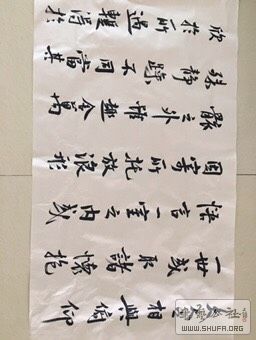 相與俯仰
一世或取諸懷抱
悟言一室之內或
因寄所託放浪形
骸之外雖趣舍萬
殊靜躁不同當其
欣於所遇暫得於
WWW.SHUFA.ORG